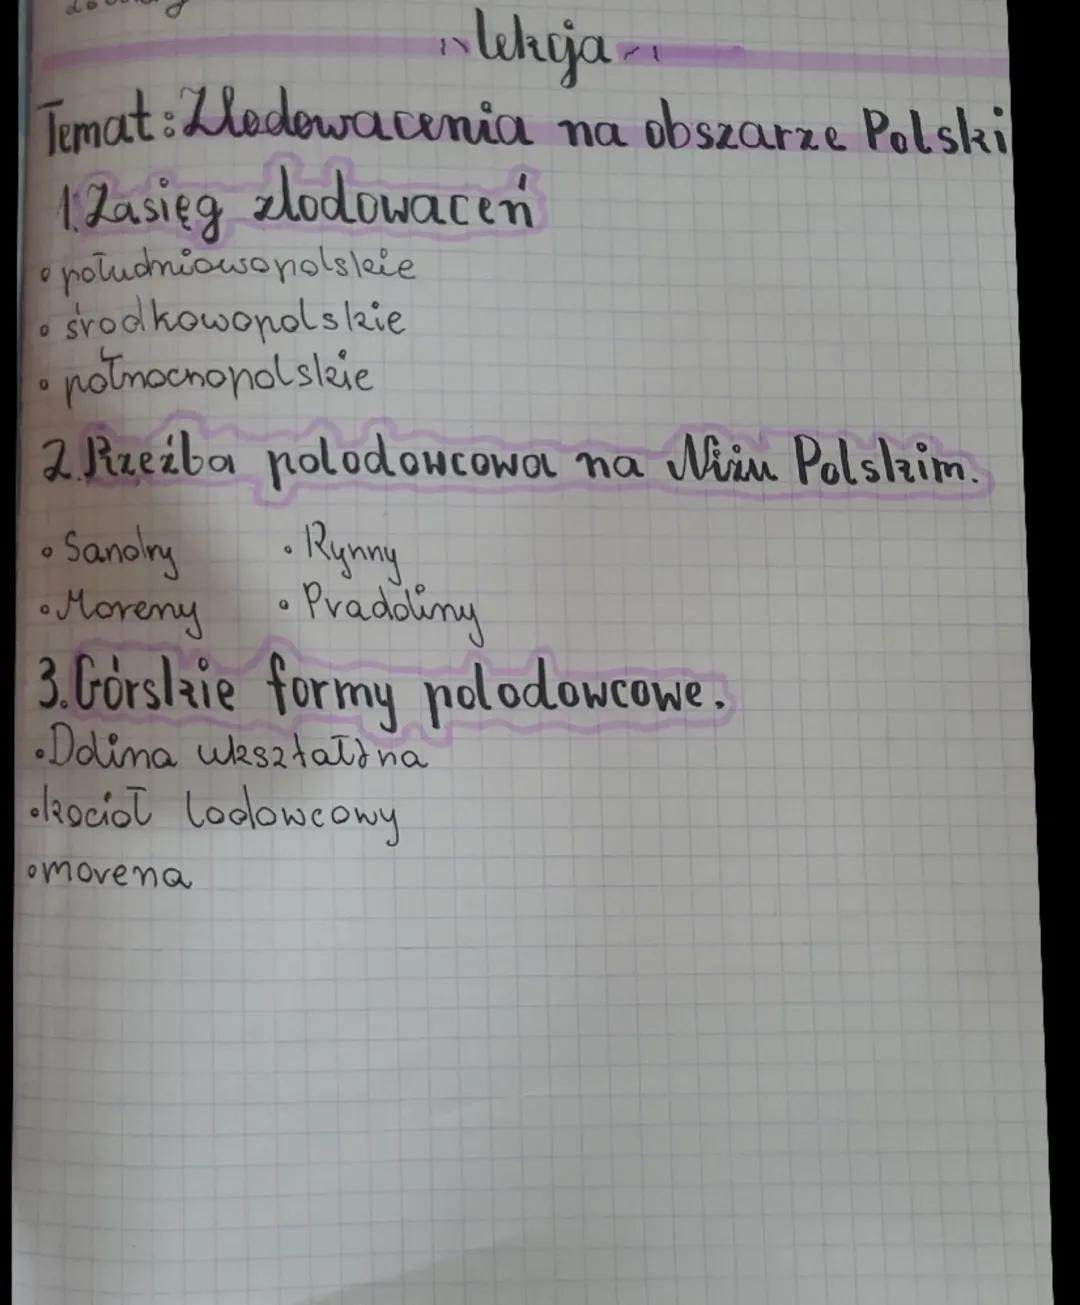 lekcja
Temat: Zlodowacenia na obszarze Polski
1. Zasięg zlodowaceń
• południowopolskie
• środkowopolskie
• północnopolskie
2. Rzeźba polodowcowa na Niżu Polskim.
• Sandry • Rynny
• Moreny • Pradoliny
3. Górskie formy polodowcowe.
• Dolina ukształtna
• kocioł lodowcowy
• morena